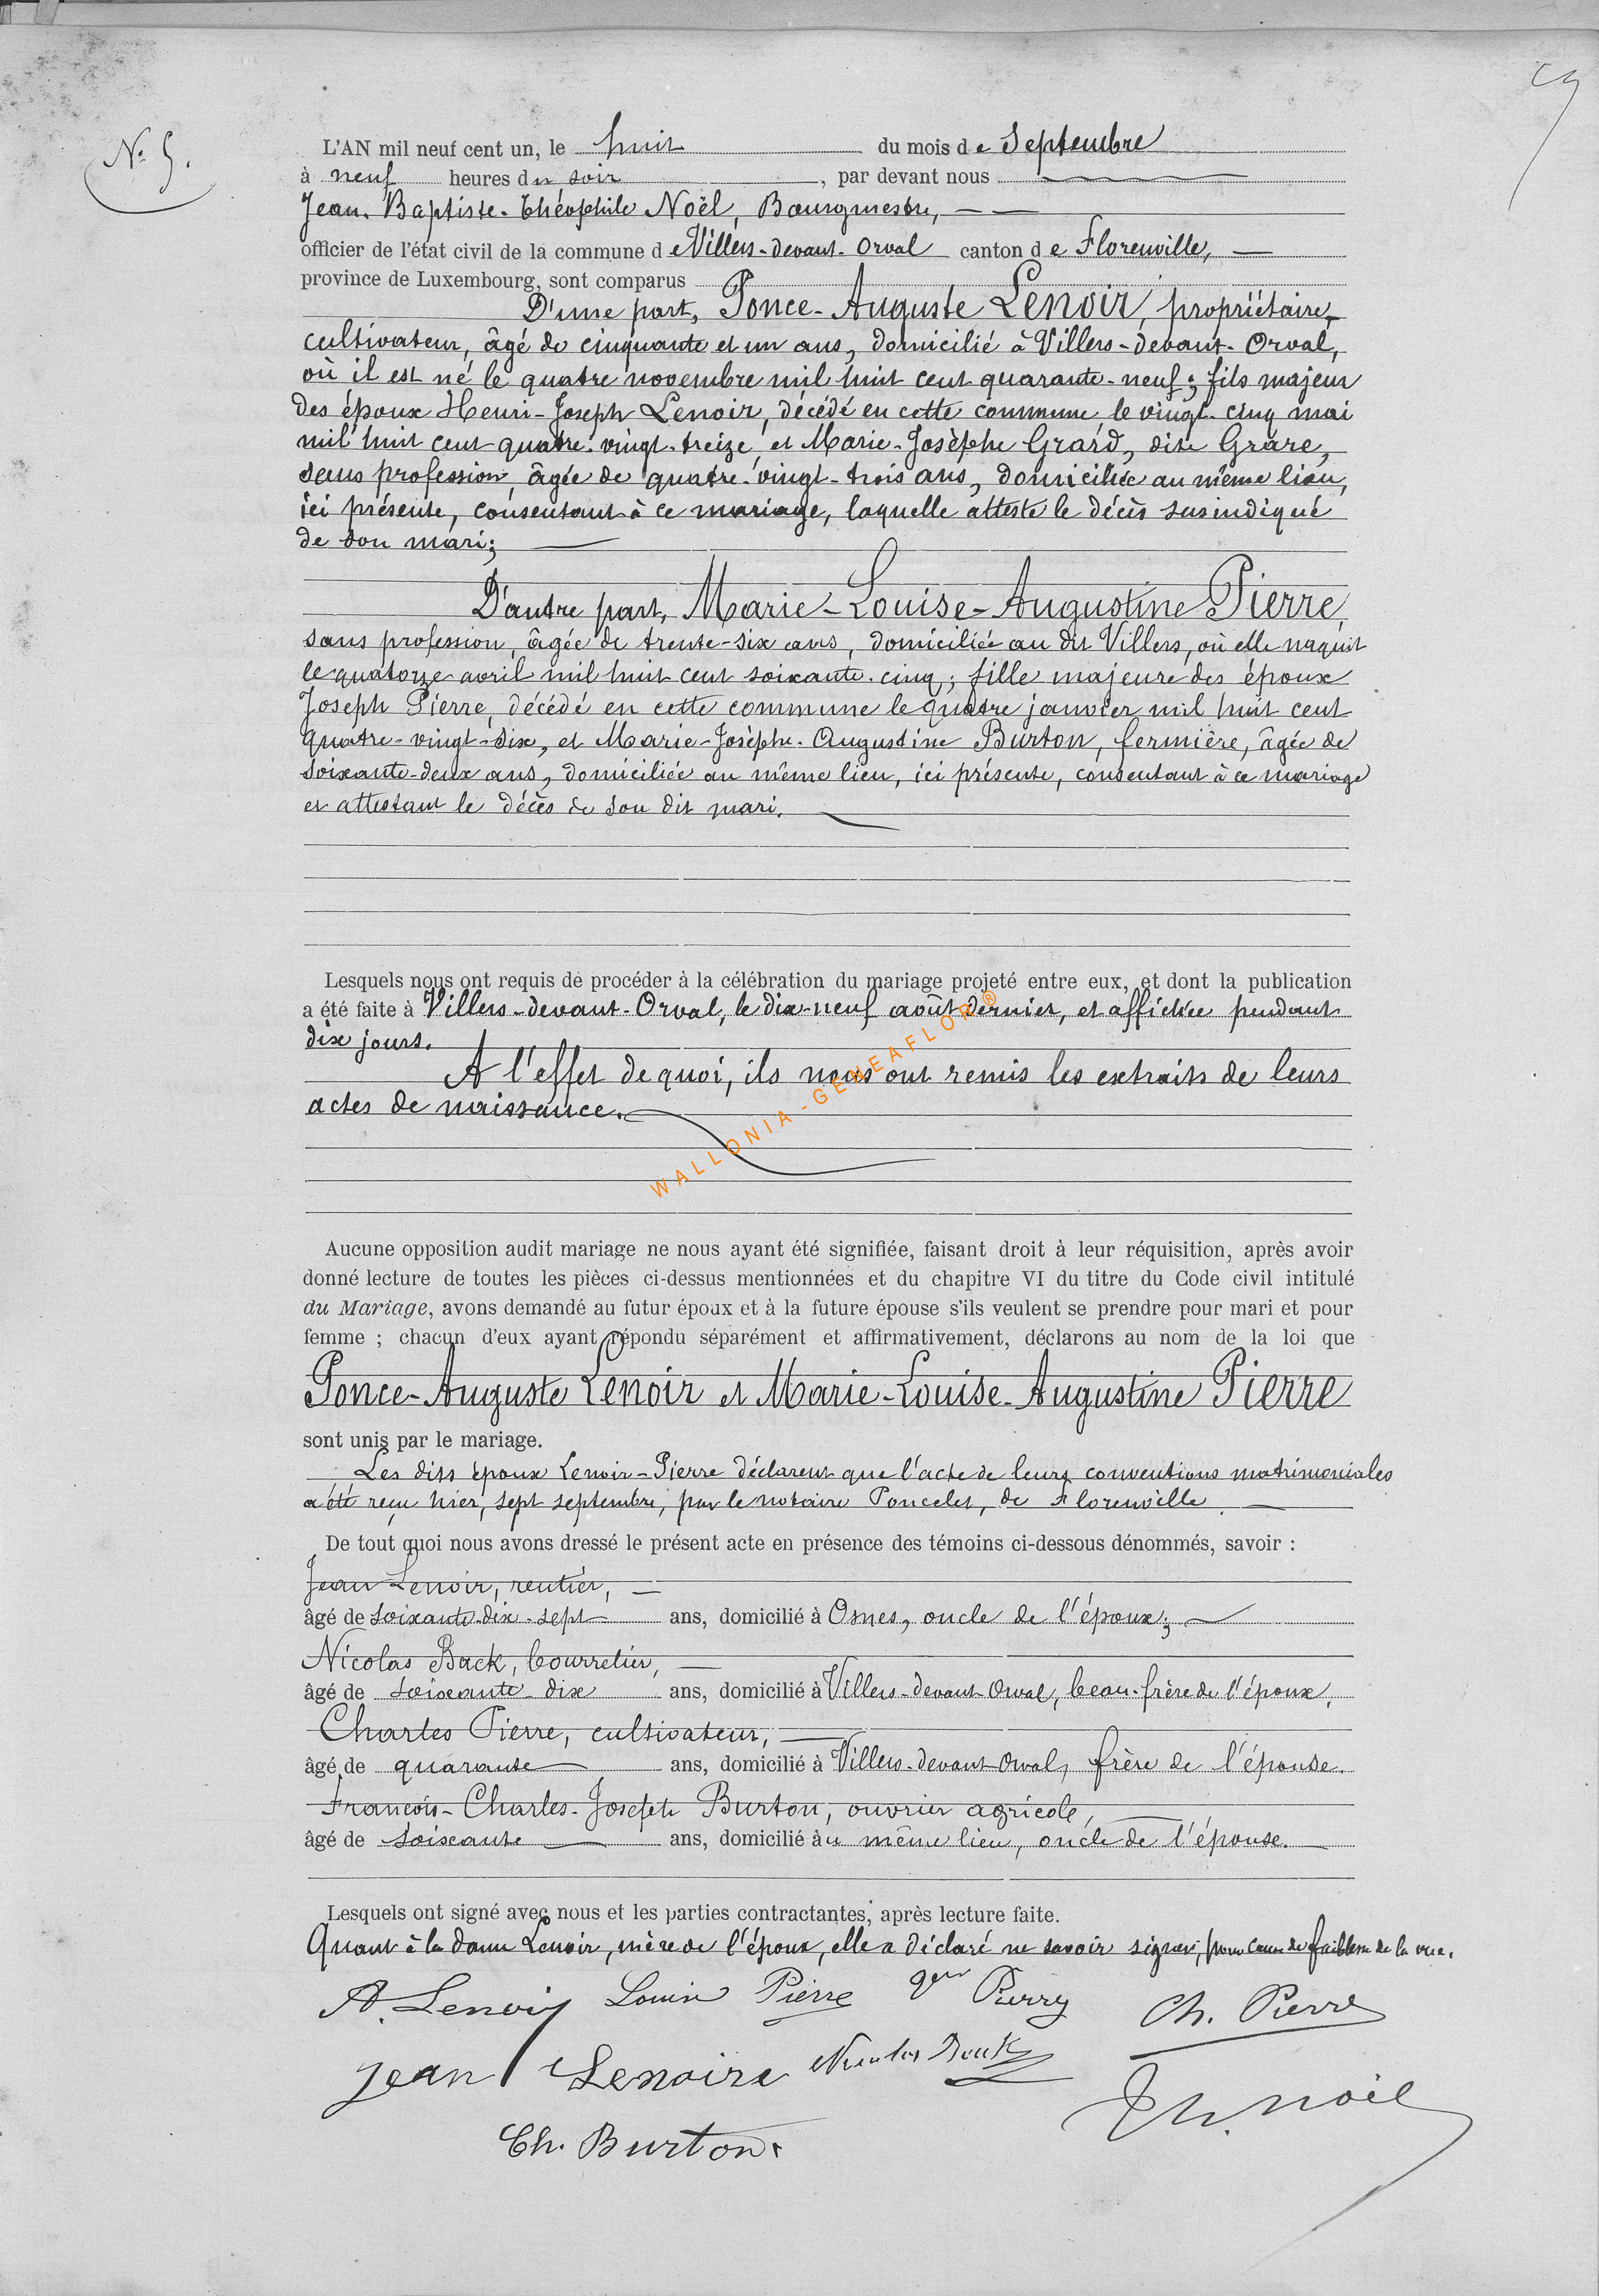 59
N° 5.
L'AN mil neuf cent un, le huit du mois de Septembre
à neuf heures du soir, par devant nous
Jean-Baptiste-Théophile Noël, Bourgmestre,
officier de l'état civil de la commune de Villers-devant-Orval canton de Florenville,
province de Luxembourg, sont comparus
D'une part, Ponce-Auguste Lenoir, propriétaire-
cultivateur, âgé de cinquante et un ans, domicilié à Villers-devant-Orval,
où il est né le quatre novembre mil huit cent quarante-neuf; fils majeur
des époux Henri-Joseph Lenoir, décédé en cette commune le vingt-cinq mai
mil huit cent quatre-vingt-treize, et Marie-Josèphe Grard, dite Grare,
sans profession, âgée de quatre-vingt-trois ans, domiciliée au même lieu,
ici présente, consentant à ce mariage, laquelle atteste le décès susindiqué
de son mari;
D'autre part, Marie-Louise-Augustine Pierre,
sans profession, âgée de trente-six ans, domiciliée au dit Villers, où elle naquit
le quatorze avril mil huit cent soixante-cinq; fille majeure des époux
Joseph Pierre, décédé en cette commune le quatre janvier mil huit cent
quatre-vingt-dix, et Marie-Josèphe-Augustine Burton, fermière, âgée de
soixante-deux ans, domiciliée au même lieu, ici présente, consentant à ce mariage
et attestant le décès de son dit mari.
Lesquels nous ont requis de procéder à la célébration du mariage projeté entre eux, et dont la publication
a été faite à Villers-devant-Orval, le dix-neuf août dernier, et affichée pendant
dix jours.
A l'effet de quoi, ils nous ont remis les extraits de leurs
actes de naissance.
WALLONIA-GENEAFLOR®
Aucune opposition audit mariage ne nous ayant été signifiée, faisant droit à leur réquisition, après avoir
donné lecture de toutes les pièces ci-dessus mentionnées et du chapitre VI du titre du Code civil intitulé
du Mariage, avons demandé au futur époux et à la future épouse s'ils veulent se prendre pour mari et pour
femme ; chacun d'eux ayant répondu séparément et affirmativement, déclarons au nom de la loi que
Ponce-Auguste Lenoir et Marie-Louise-Augustine Pierre
sont unis par le mariage.
Les dits époux Lenoir-Pierre déclarent que l'acte de leurs conventions matrimoniales
a été reçu hier, sept septembre, par le notaire Poncelet, de Florenville.
De tout quoi nous avons dressé le présent acte en présence des témoins ci-dessous dénommés, savoir :
Jean Lenoir, rentier,
âgé de soixante-dix-sept ans, domicilié à Osnes, oncle de l'époux;
Nicolas Back, bourrelier,
âgé de soixante-dix ans, domicilié à Villers-devant-Orval, beau-frère de l'époux,
Charles Pierre, cultivateur,
âgé de quarante ans, domicilié à Villers-devant-Orval, frère de l'épouse.
François-Charles-Joseph Burton, ouvrier agricole,
âgé de soixante ans, domicilié au même lieu, oncle de l'épouse.
Lesquels ont signé avec nous et les parties contractantes, après lecture faite.
Quant à la dame Lenoir, mère de l'époux, elle a déclaré ne savoir signer, pour cause de faiblesse de la vue.
A. Lenoir Louise Pierre Pierre Ch. Pierre
Jean Lenoire Nicolas Back
Th. Noël
Ch. Burton.